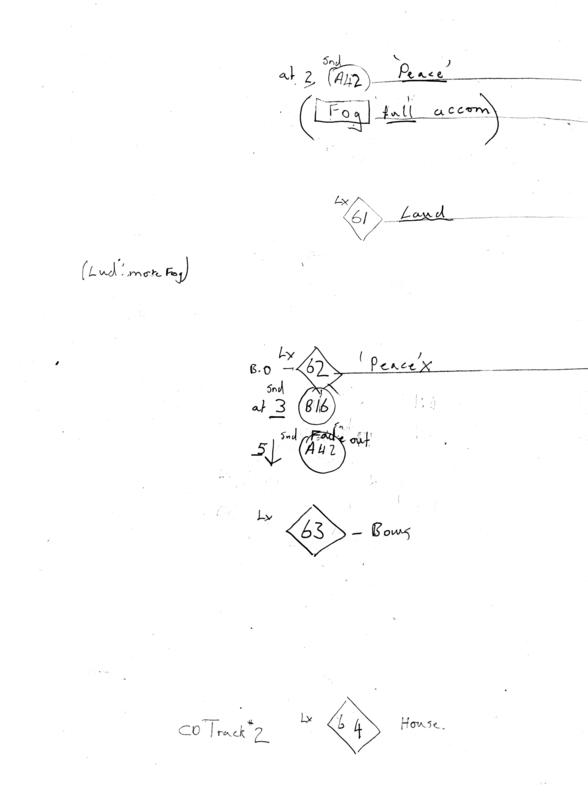 at 2 snd A42 'Peace'
(Fog full accom)
Lx 61 Laud
(Lud: more Fog)
B.O – Lx 62 'Peace' X
at 3 snd B16
5 ↓ snd A42 Fade out
Lx 63 – Bows
CD Track #2 Lx 64 House.